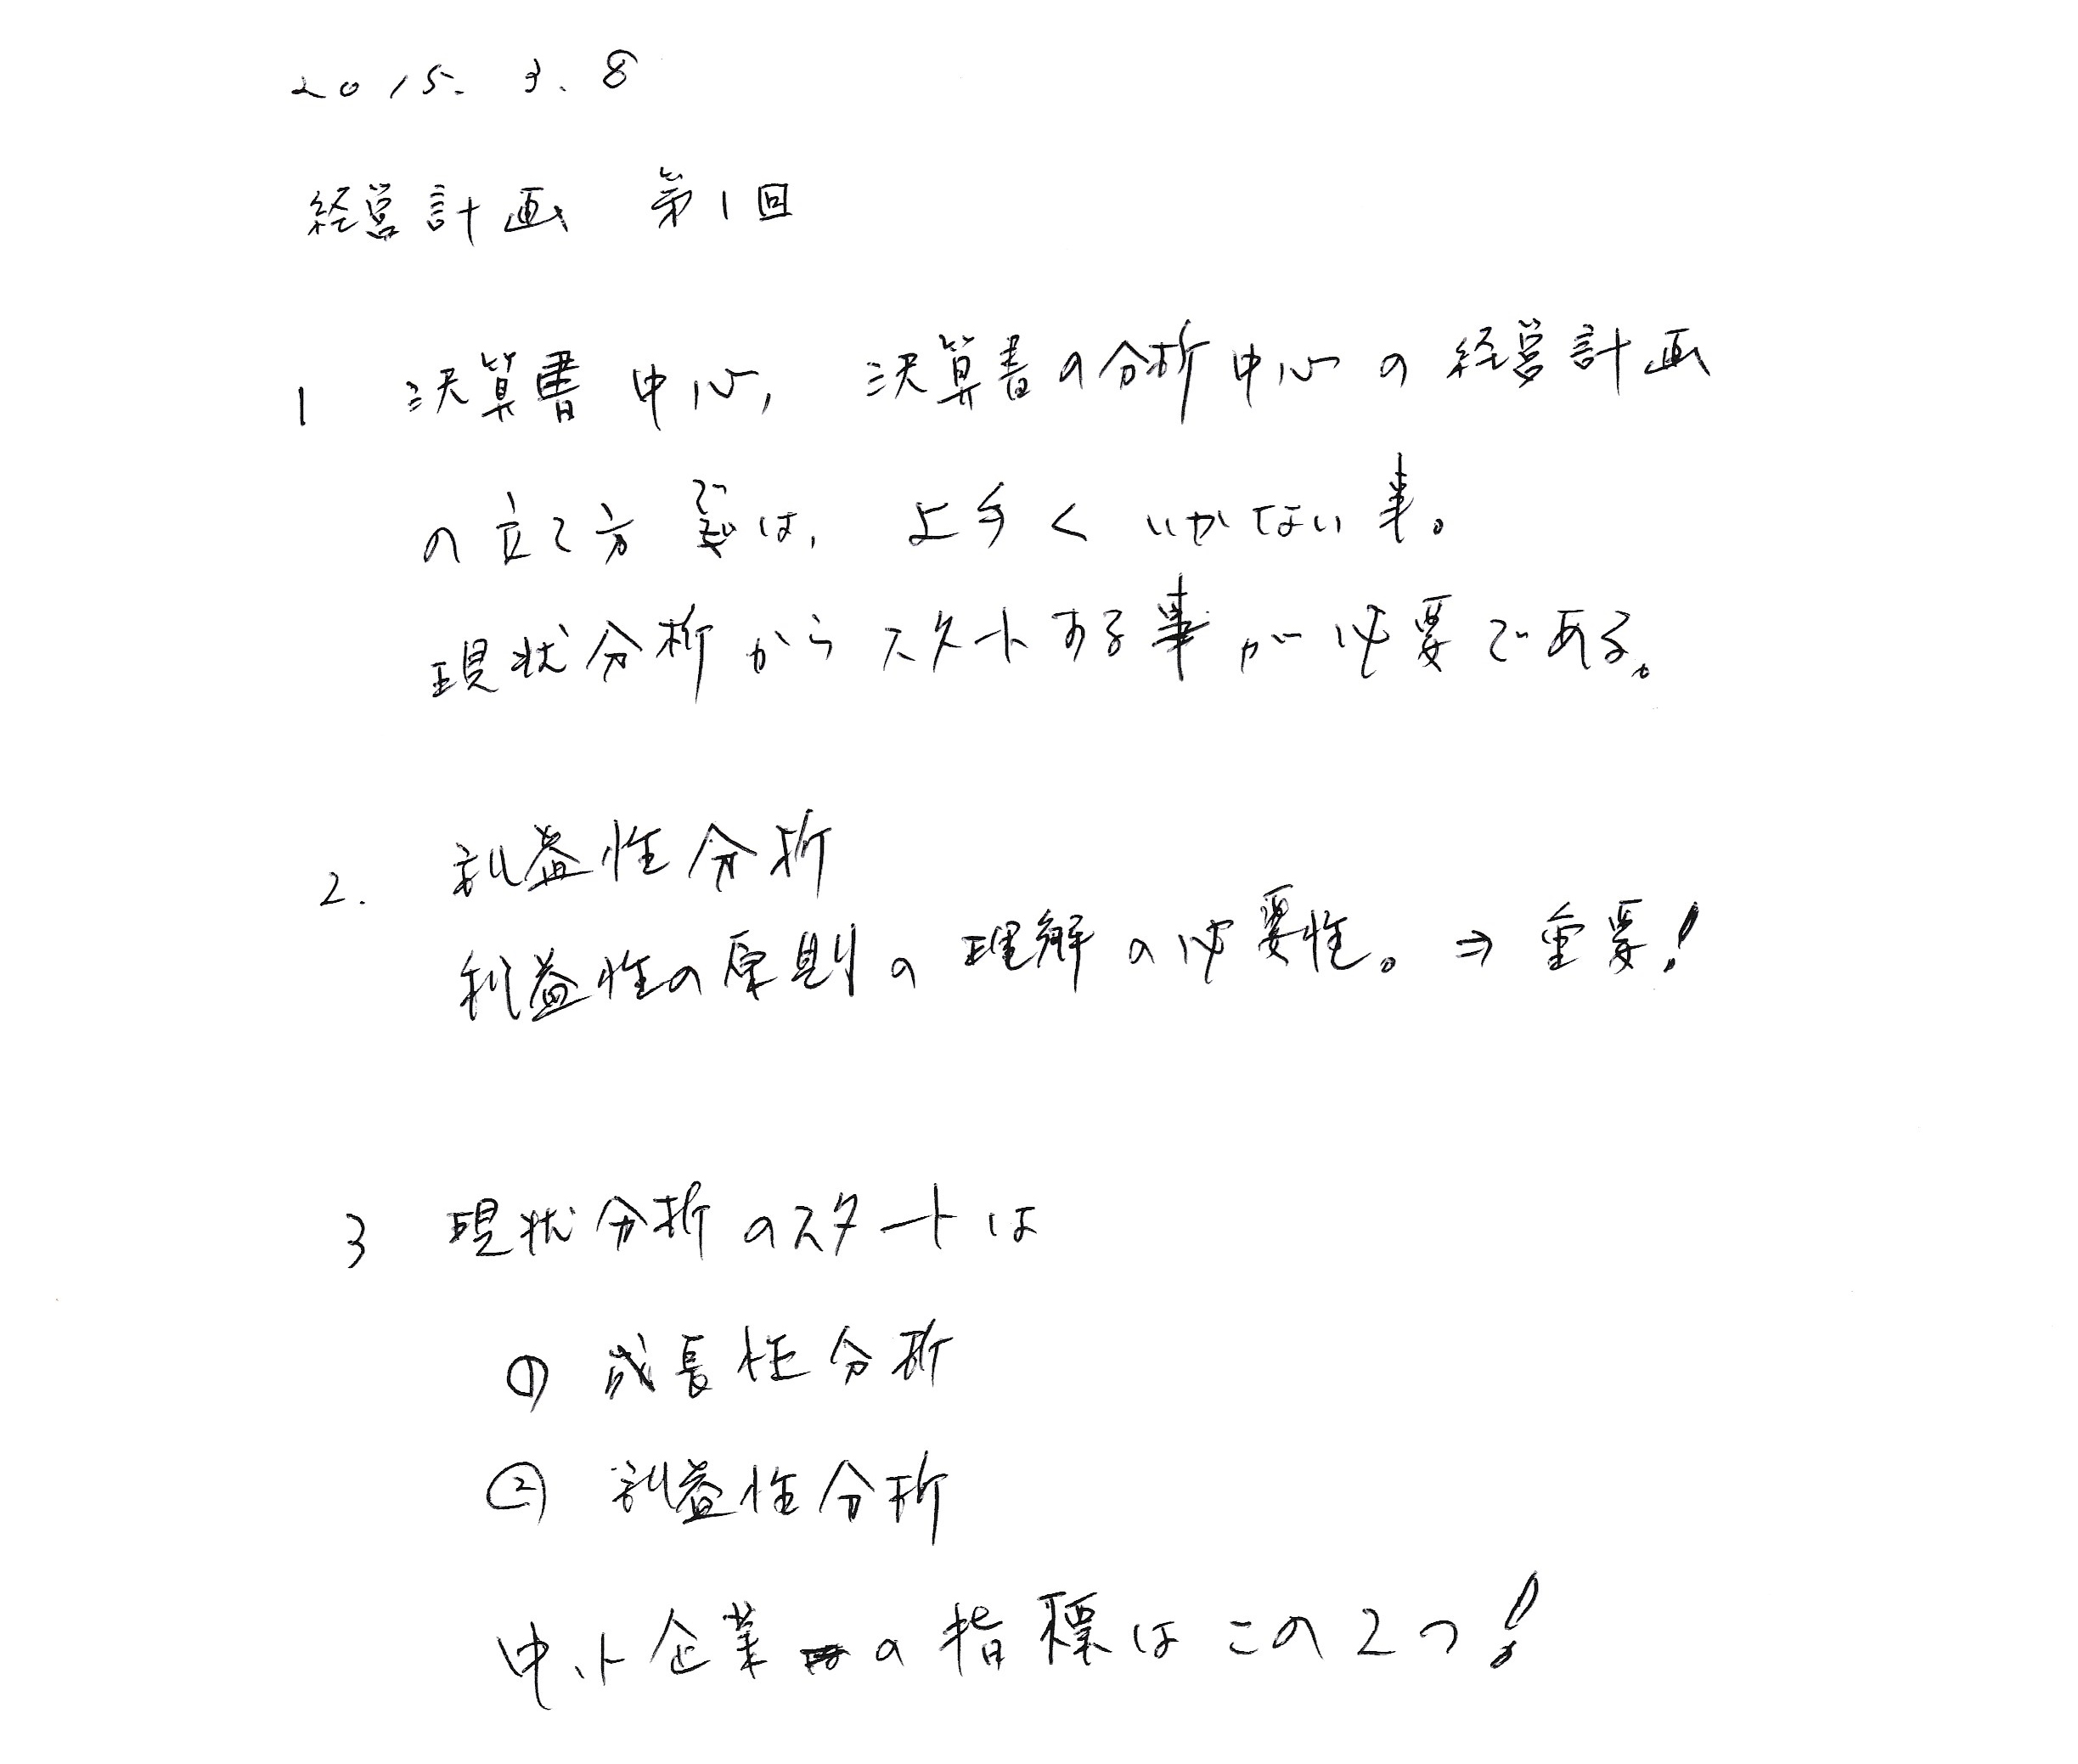 2015. 3. 8
経営計画 第1回
1 決算書中心, 決算書の分析中心の経営計画
の立て方では, 上手くいかない事。
現状分析からスタートする事が必要である。
2. 利益性分析
利益性の原則の理解の必要性。⇒ 重要!
3 現状分析のスタートは
① 成長性分析
② 利益性分析
中小企業の指標はこの2つ!